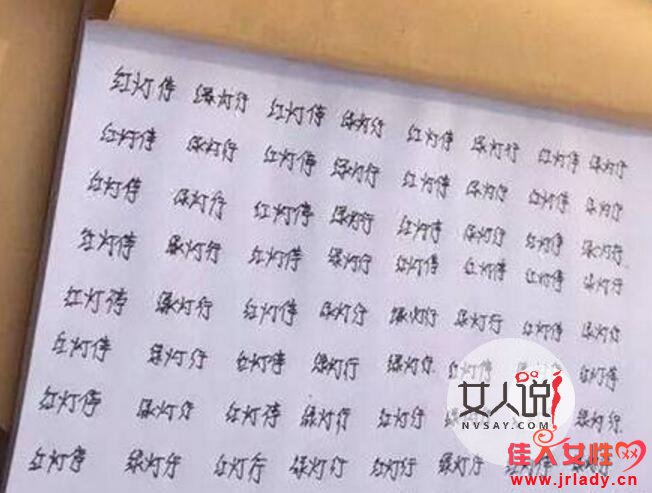 红灯停 绿灯行 红灯停 绿灯行 红灯停 绿灯行 红灯停 绿灯行
红灯停 绿灯行 红灯停 绿灯行 红灯停 绿灯行 红灯停 绿灯行
红灯停 绿灯行 红灯停 绿灯行 红灯停 绿灯行 红灯停 绿灯行
红灯停 绿灯行 红灯停 绿灯行 红灯停 红灯停 红灯停 绿灯行
红灯停 绿灯行 红灯停 绿灯行 绿灯行 绿灯行 红灯停 绿灯行
红灯停 绿灯行 红灯停 绿灯行 绿灯行 红灯停 红灯停
红灯停 绿灯行 红灯停 绿灯行 红灯停 绿灯行
红灯停 绿灯行 红灯行 绿灯行 红灯行 绿灯行 红灯停 绿灯行
女人说
NVSAY.COM
佳人女性网
www.jrlady.cn